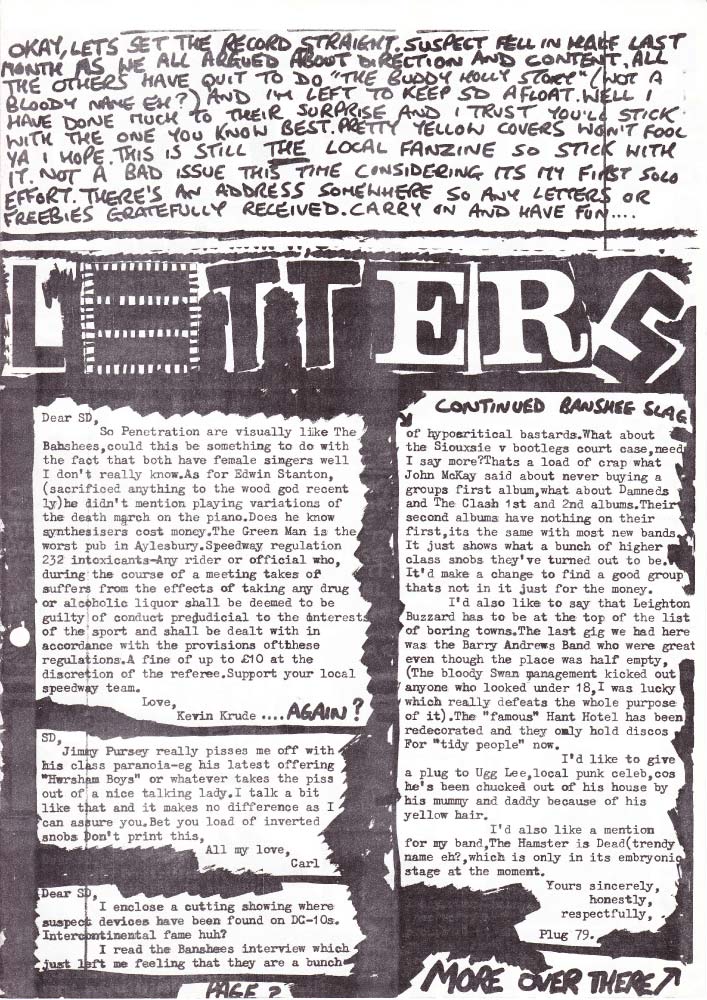 OKAY, LETS SET THE RECORD STRAIGHT. SUSPECT FELL IN HALF LAST
MONTH AS WE ALL ARGUED ABOUT DIRECTION AND CONTENT. ALL
THE OTHERS HAVE QUIT TO DO "THE BUDDY HOLLY STORY" (NOT A
BLOODY NAME EH?) AND I'M LEFT TO KEEP SD AFLOAT. WELL I
HAVE DONE MUCH TO THEIR SURPRISE AND I TRUST YOU'LL STICK
WITH THE ONE YOU KNOW BEST. PRETTY YELLOW COVERS WON'T FOOL
YA I HOPE. THIS IS STILL THE LOCAL FANZINE SO STICK WITH
IT. NOT A BAD ISSUE THIS TIME CONSIDERING ITS MY FIRST SOLO
EFFORT. THERE'S AN ADDRESS SOMEWHERE SO ANY LETTERS OR
FREEBIES GRATEFULLY RECEIVED. CARRY ON AND HAVE FUN....
LETTERS
Dear SD,
So Penetration are visually like The
Babshees,could this be something to do with
the fact that both have female singers well
I don't really know.As for Edwin Stanton,
(sacrificed anything to the wood god recent
ly)he didn't mention playing variations of
the death march on the piano.Does he know
synthesisers cost money.The Green Man is the
worst pub in Aylesbury.Speedway regulation
232 intoxicants-Any rider or official who,
during the course of a meeting takes of
suffers from the effects of taking any drug
or alcoholic liquor shall be deemed to be
guilty of conduct prejudicial to the interests
of the sport and shall be dealt with in
accordance with the provisions ofthhese
regulations.A fine of up to £10 at the
discretion of the referee.Support your local
speedway team.
Love,
Kevin Krude .... AGAIN?
SD,
Jimmy Pursey really pisses me off with
his class paranoia-eg his latest offering
"Hwrsham Boys" or whatever takes the piss
out of a nice talking lady.I talk a bit
like that and it makes no difference as I
can assure you.Bet you load of inverted
snobs Don't print this,
All my love,
Carl
Dear SD,
I enclose a cutting showing where
suspect devices have been found on DC-10s.
Intercontinental fame huh?
I read the Banshees interview which
just left me feeling that they are a bunch
PAGE 2
CONTINUED BANSHEE SLAG
of hypocritical bastards.What about
the Siouxsie v bootlegs court case,need
I say more?Thats a load of crap what
John McKay said about never buying a
groups first album,what about Damneds
and The Clash 1st and 2nd albums.Their
second albums have nothing on their
first,its the same with most new bands.
It just shows what a bunch of higher
class snobs they've turned out to be.
It'd make a change to find a good group
thats not in it just for the money.
I'd also like to say that Leighton
Buzzard has to be at the top of the list
of boring towns.The last gig we had here
was the Barry Andrews Band who were great
even though the place was half empty,
(The bloody Swan management kicked out
anyone who looked under 18,I was lucky
which really defeats the whole purpose
of it).The "famous" Hant Hotel has been
redecorated and they only hold discos
For "tidy people" now.
I'd like to give
a plug to Ugg Lee,local punk celeb,cos
he's been chucked out of his house by
his mummy and daddy because of his
yellow hair.
I'd also like a mention
for my band,The Hamster is Dead(trendy
name eh?,which is only in its embryonic
stage at the moment.
Yours sincerely,
honestly,
respectfully,
Plug 79.
MORE OVER THERE